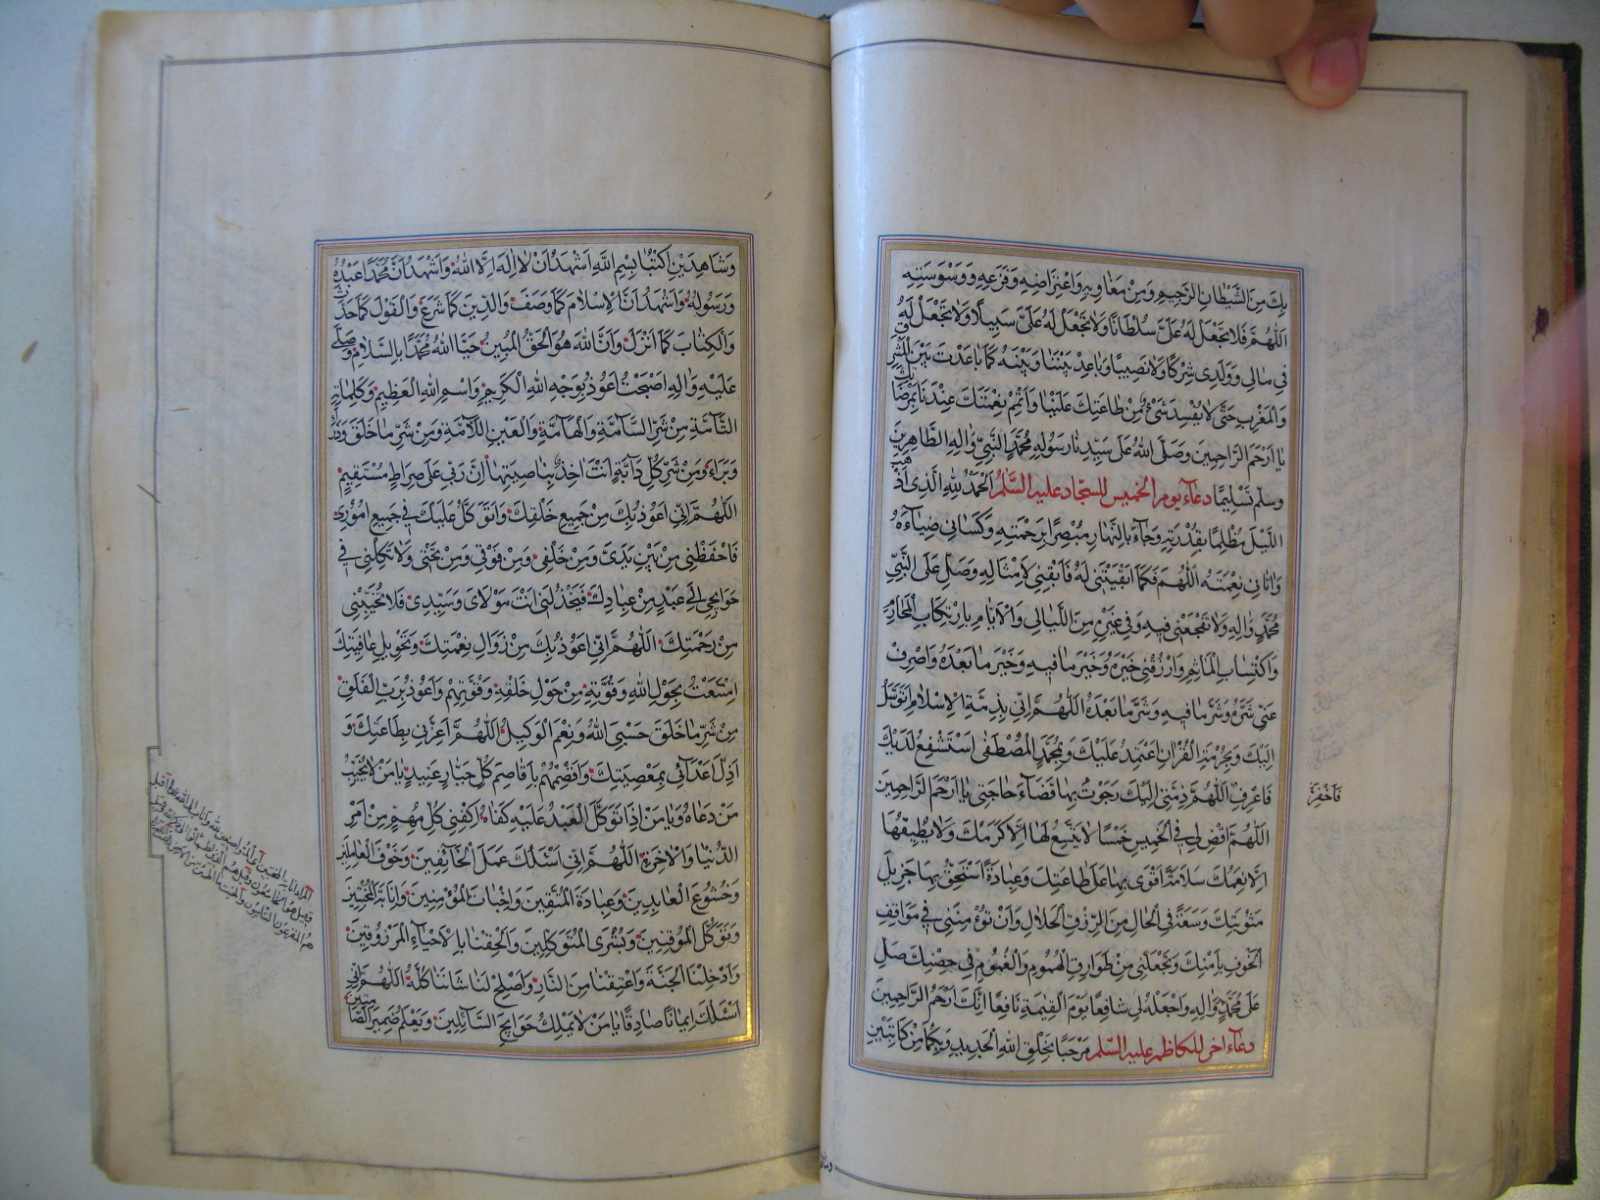 بِكَ مِنَ الشَّيْطَانِ الرَّجِيمِ وَمِنْ مَغَاوِيهِ وَاعْتِرَاضِهِ وَفَزَعِهِ وَوَسْوَسَتِهِ
اَللّٰهُمَّ فَلَا تَجْعَلْ لَهُ عَلَيَّ سُلْطَانًا وَلَا تَجْعَلْ لَهُ عَلَيَّ سَبِيلًا وَلَا تَجْعَلْ لَهُ
فِي مَالِي وَوَلَدِي شِرْكًا وَلَا نَصِيبًا وَبَاعِدْ بَيْنَنَا وَبَيْنَهُ كَمَا بَاعَدْتَ بَيْنَ الْمَشْرِقِ
وَالْمَغْرِبِ حَتَّى لَا يُفْسِدَ شَيْءٌ مِنْ طَاعَتِكَ عَلَيْنَا وَأَتْمِمْ نِعْمَتَكَ عِنْدَنَا بِمَرْضَاتِكَ
يَا أَرْحَمَ الرَّاحِمِينَ وَصَلَّى اللهُ عَلَى سَيِّدِنَا رَسُولِهِ مُحَمَّدٍ النَّبِيِّ وَآلِهِ الطَّاهِرِينَ
وَسَلَّمَ تَسْلِيمًا دعاء يوم الخميس للسجاد عليه السلم اَلْحَمْدُ لِلّٰهِ الَّذِي أَذْهَبَ
اللَّيْلَ مُظْلِمًا بِقُدْرَتِهِ وَجَاءَ بِالنَّهَارِ مُبْصِرًا بِرَحْمَتِهِ وَكَسَانِي ضِيَاءَهُ
وَآتَانِي نِعْمَتَهُ اَللّٰهُمَّ فَكَمَا أَبْقَيْتَنِي لَهُ فَأَبْقِنِي لِأَمْثَالِهِ وَصَلِّ عَلَى النَّبِيِّ
مُحَمَّدٍ وَآلِهِ وَلَا تَفْجَعْنِي فِيهِ وَفِي غَيْرِهِ مِنَ اللَّيَالِي وَالْأَيَّامِ بِارْتِكَابِ الْمَحَارِمِ
وَاكْتِسَابِ الْمَآثِمِ وَارْزُقْنِي خَيْرَهُ وَخَيْرَ مَا فِيهِ وَخَيْرَ مَا بَعْدَهُ وَاصْرِفْ
عَنِّي شَرَّهُ وَشَرَّ مَا فِيهِ وَشَرَّ مَا بَعْدَهُ اَللّٰهُمَّ إِنِّي بِذِمَّةِ الْإِسْلَامِ أَتَوَسَّلُ
إِلَيْكَ وَبِحُرْمَةِ الْقُرْآنِ أَعْتَمِدُ عَلَيْكَ وَبِمُحَمَّدٍ الْمُصْطَفَى أَسْتَشْفِعُ لَدَيْكَ
فَاعْرِفِ اَللّٰهُمَّ ذِمَّتِيَ الَّتِي رَجَوْتُ بِهَا قَضَاءَ حَاجَتِي يَا أَرْحَمَ الرَّاحِمِينَ
اَللّٰهُمَّ اقْضِ لِي فِي الْخَمِيسِ خَمْسًا لَا يَتَّسِعُ لَهَا إِلَّا كَرَمُكَ وَلَا يُطِيقُهَا
إِلَّا نِعَمُكَ سَلَامَةً أَقْوَى بِهَا عَلَى طَاعَتِكَ وَعِبَادَةً أَسْتَحِقُّ بِهَا جَزِيلَ
مَثُوبَتِكَ وَسَعَةً فِي الْحَالِ مِنَ الرِّزْقِ الْحَلَالِ وَأَنْ تُؤْمِنَنِي فِي مَوَاقِفِ
الْخَوْفِ بِأَمْنِكَ وَتَجْعَلَنِي مِنْ طَوَارِقِ الْهُمُومِ وَالْغُمُومِ فِي حِصْنِكَ صَلِّ
عَلَى مُحَمَّدٍ وَآلِهِ وَاجْعَلْهُ لِي شَافِعًا يَوْمَ الْقِيٰمَةِ نَافِعًا إِنَّكَ أَرْحَمُ الرَّاحِمِينَ
دعاء اخر للكاظم عليه السلم مَرْحَبًا بِخَلْقِ اللهِ الْجَدِيدِ وَبِكُمَا مِنْ كَاتِبَيْنِ
فَاخْفِرْ
وَشَاهِدَيْنِ اُكْتُبَا بِسْمِ اللهِ أَشْهَدُ أَنْ لَا إِلٰهَ إِلَّا اللهُ وَأَشْهَدُ أَنَّ مُحَمَّدًا عَبْدُهُ
وَرَسُولُهُ وَأَشْهَدُ أَنَّ الْإِسْلَامَ كَمَا وَصَفَ وَالدِّينَ كَمَا شَرَعَ وَالْقَوْلَ كَمَا حَدَّثَ
وَالْكِتَابَ كَمَا أَنْزَلَ وَأَنَّ اللهَ هُوَ الْحَقُّ الْمُبِينُ حَيَّا اللهُ مُحَمَّدًا بِالسَّلَامِ وَصَلَّى
عَلَيْهِ وَآلِهِ أَصْبَحْتُ أَعُوذُ بِوَجْهِ اللهِ الْكَرِيمِ وَاسْمِ اللهِ الْعَظِيمِ وَكَلِمَاتِهِ
التَّامَّةِ مِنْ شَرِّ السَّامَّةِ وَالْهَامَّةِ وَالْعَيْنِ اللَّامَّةِ وَمِنْ شَرِّ مَا خَلَقَ وَذَرَأَ
وَبَرَأَ وَمِنْ شَرِّ كُلِّ دَابَّةٍ أَنْتَ آخِذٌ بِنَاصِيَتِهَا إِنَّ رَبِّي عَلَى صِرَاطٍ مُسْتَقِيمٍ
اَللّٰهُمَّ إِنِّي أَعُوذُ بِكَ مِنْ جَمِيعِ خَلْقِكَ وَأَتَوَكَّلُ عَلَيْكَ فِي جَمِيعِ أُمُورِي
فَاحْفَظْنِي مِنْ بَيْنِ يَدَيَّ وَمِنْ خَلْفِي وَمِنْ فَوْقِي وَمِنْ تَحْتِي وَلَا تَكِلْنِي فِي
حَوَائِجِي إِلَى عَبْدٍ مِنْ عِبَادِكَ فَيَخْذُلَنِي أَنْتَ مَوْلَايَ وَسَيِّدِي فَلَا تُخَيِّبْنِي
مِنْ رَحْمَتِكَ اَللّٰهُمَّ إِنِّي أَعُوذُ بِكَ مِنْ زَوَالِ نِعْمَتِكَ وَتَحْوِيلِ عَافِيَتِكَ
اِمْتَنَعْتُ بِحَوْلِ اللهِ وَقُوَّتِهِ مِنْ حَوْلِ خَلْقِهِ وَقُوَّتِهِمْ وَأَعُوذُ بِرَبِّ الْفَلَقِ
مِنْ شَرِّ مَا خَلَقَ حَسْبِيَ اللهُ وَنِعْمَ الْوَكِيلُ اَللّٰهُمَّ أَعِزَّنِي بِطَاعَتِكَ وَ
أَذِلَّ أَعْدَائِي بِمَعْصِيَتِكَ وَاقْصِمْهُمْ يَا قَاصِمَ كُلِّ جَبَّارٍ عَنِيدٍ يَا مَنْ لَا يُخَيِّبُ
مَنْ دَعَاهُ وَيَا مَنْ إِذَا تَوَكَّلَ الْعَبْدُ عَلَيْهِ كَفَاهُ اِكْفِنِي كُلَّ مُهِمٍّ مِنْ أَمْرِ
الدُّنْيَا وَالْآخِرَةِ اَللّٰهُمَّ إِنِّي أَسْئَلُكَ عَمَلَ الْخَائِفِينَ وَخَوْفَ الْعَامِلِينَ
وَخُشُوعَ الْعَابِدِينَ وَعِبَادَةَ الْمُتَّقِينَ وَإِخْبَاتَ الْمُؤْمِنِينَ وَإِنَابَةَ الْمُخْبِتِينَ
وَتَوَكُّلَ الْمُوقِنِينَ وَبُشْرَى الْمُتَوَكِّلِينَ وَأَلْحِقْنَا بِالْأَحْيَاءِ الْمَرْزُوقِينَ
وَأَدْخِلْنَا الْجَنَّةَ وَاعْتِقْنَا مِنَ النَّارِ وَأَصْلِحْ لَنَا شَأْنَنَا كُلَّهُ اَللّٰهُمَّ إِنِّي
أَسْئَلُكَ إِيمَانًا صَادِقًا يَا مَنْ لَا يَمْلِكُ حَوَائِجَ السَّائِلِينَ وَيَعْلَمُ ضَمِيرَ الصَّامِتِينَ